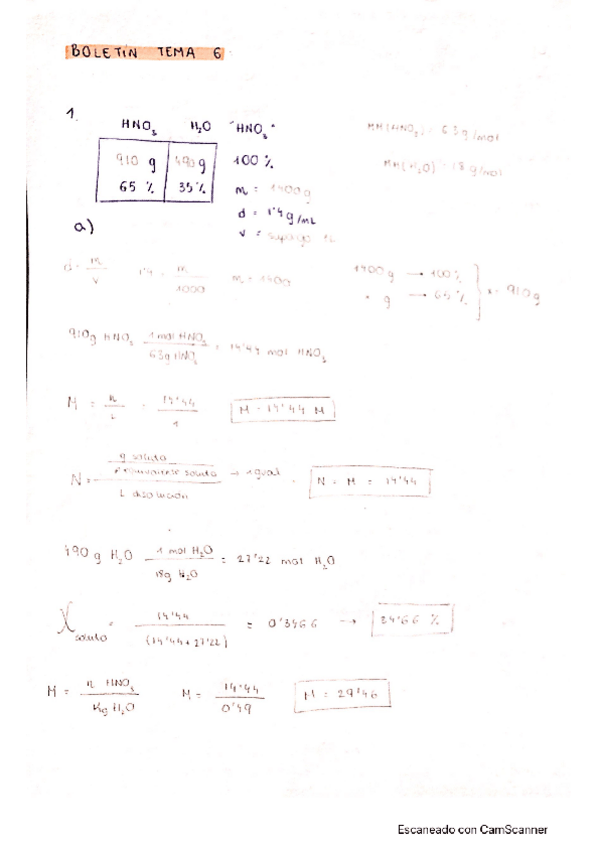 BOLETÍN TEMA 6
1.
HNO₃ H₂O "HNO₃"
910 g 490 g 100 %
65 % 35 % m = 1400 g
d = 1'4 g/mL
v = supongo 1L
MM(HNO₃) = 63 g/mol
MM(H₂O) = 18 g/mol
a)
d = m/v 1'4 = m/1000 m = 1400
1400 g → 100 %
x g → 65 % } x = 910 g
910 g HNO₃ 1 mol HNO₃/63 g HNO₃ = 14'44 mol HNO₃
M = n/L = 14'44/1 M = 14'44 M
N = g soluto/P equivalente soluto/L disolución → igual. N = M = 14'44
490 g H₂O 1 mol H₂O/18g H₂O = 27'22 mol H₂O
X soluto = 14'44/(14'44+27'22) = 0'3466 → 34'66 %
M = n HNO₃/Kg H₂O M = 14'44/0'49 M = 29'46
Escaneado con CamScanner